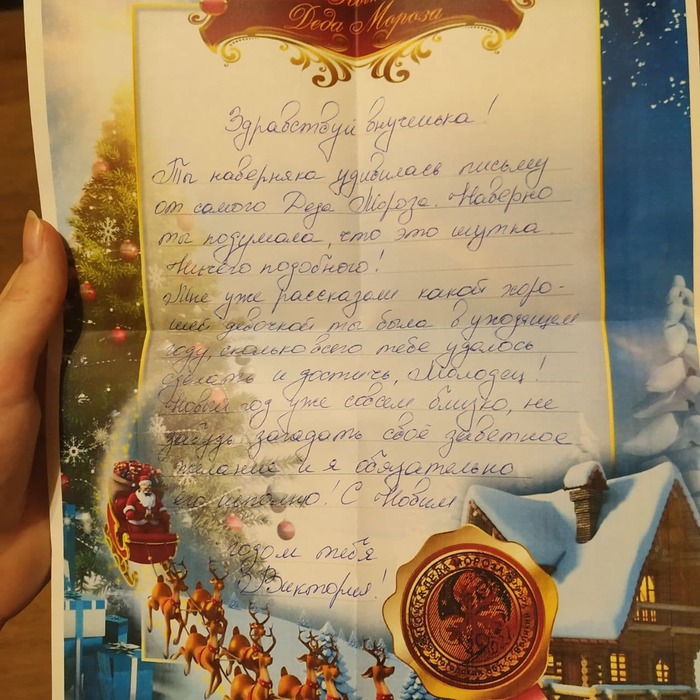 Деда Мороза
Здравствуй внученька!
Ты наверняка удивилась письму
от самого Деда Мороза. Наверно
ты подумала, что это шутка.
Ничего подобного!
Мне уже рассказали какой хоро-
шей девочкой ты была в уходящем
году, сколько всего тебе удалось
сделать и достичь, Молодец!
Новый год уже совсем близко, не
забудь загадать своё заветное
желание и я обязательно
его исполню! С Новым
годом тебя
Виктория!